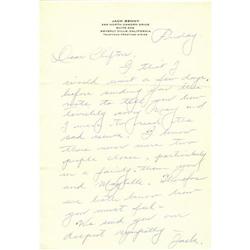 JACK BENNY
BEVERLY HILLS, CALIFORNIA
Friday
Dear Clifton,
I that I
would wait a few days
before sending you this
note to tell you how
terribly sorry Mary and
I were to hear the
sad news. I know
there never were two
people closer, particularly
in a family, than you
and Maybelle.
we both know how
you must feel.
We send you our
deepest sympathy
Jack